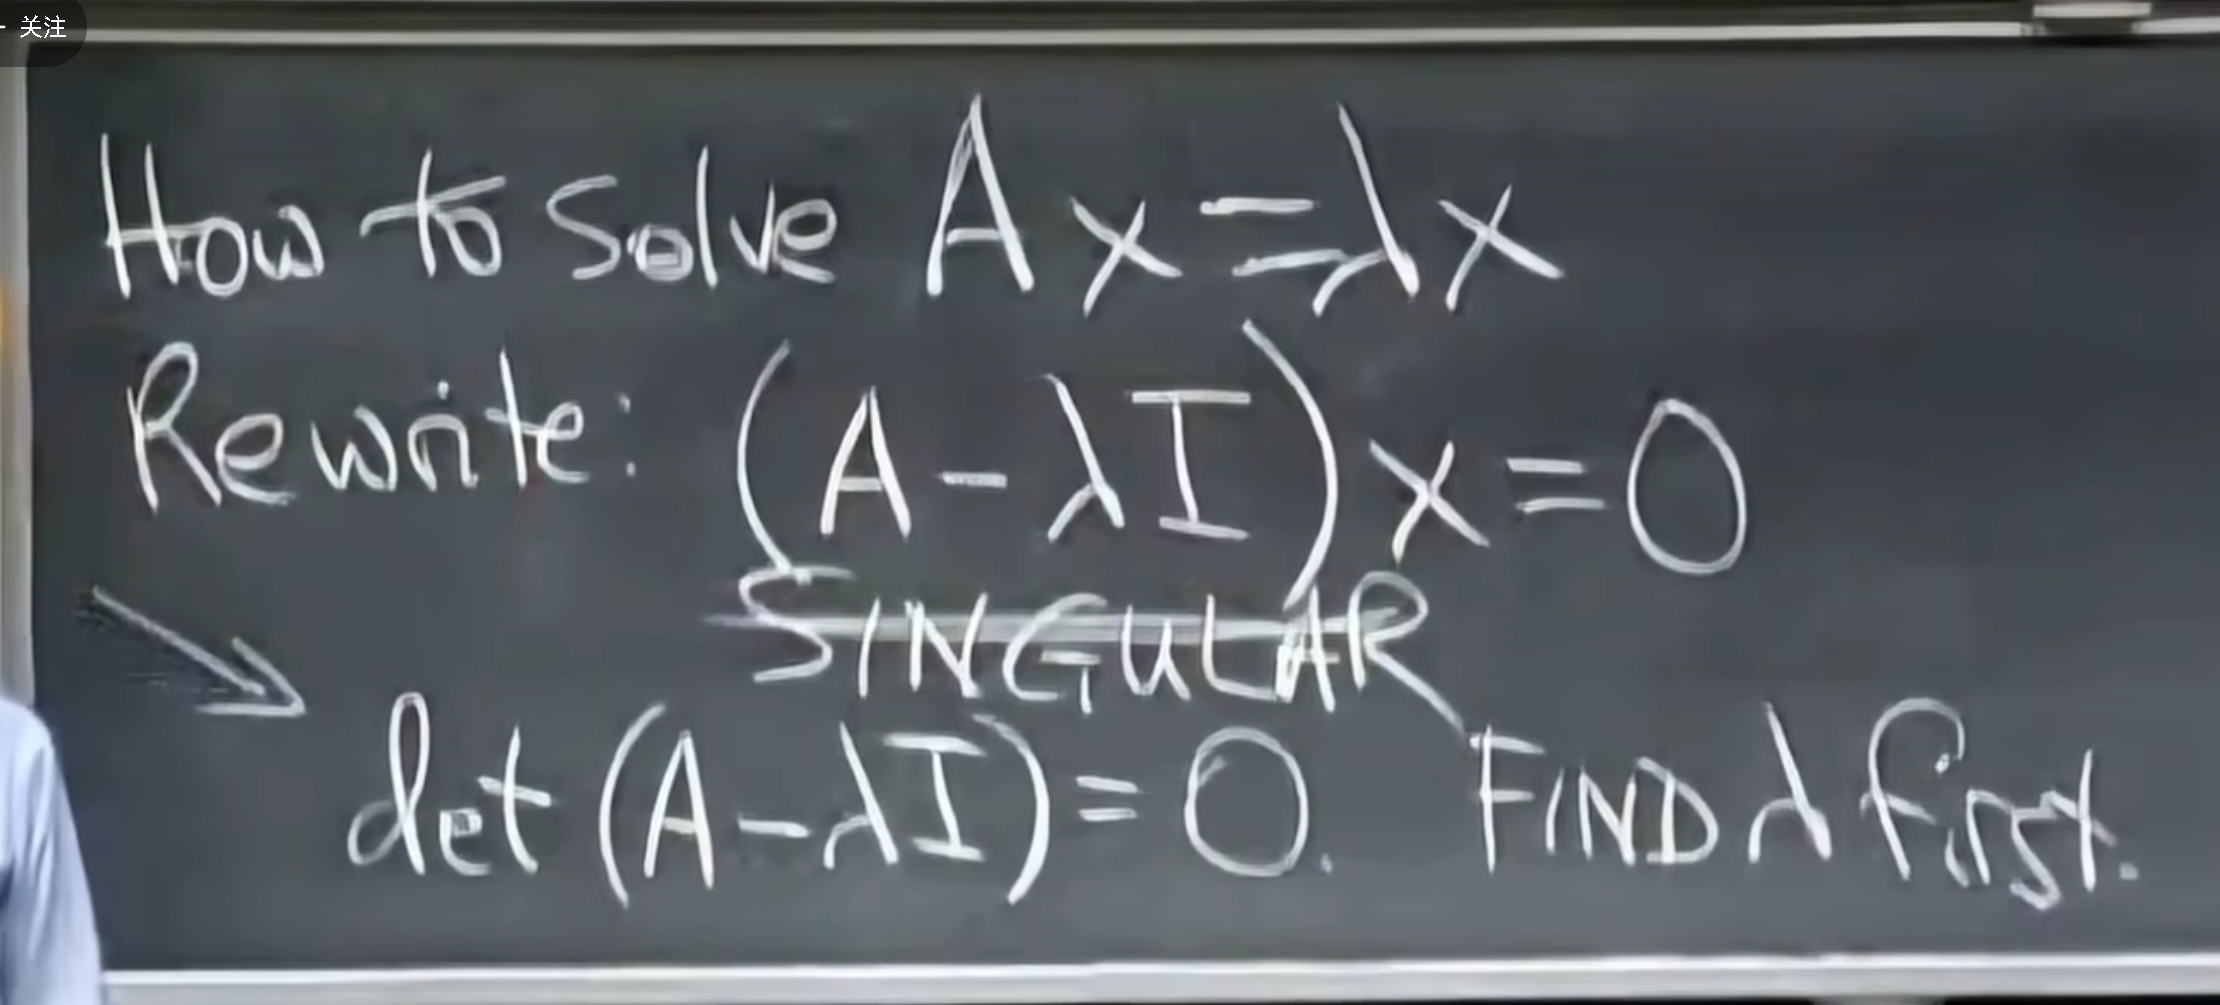 关注
How to solve Ax=λx
Rewrite: (A-λI)x=0
SINGULAR
det(A-λI)=0. FIND λ first.